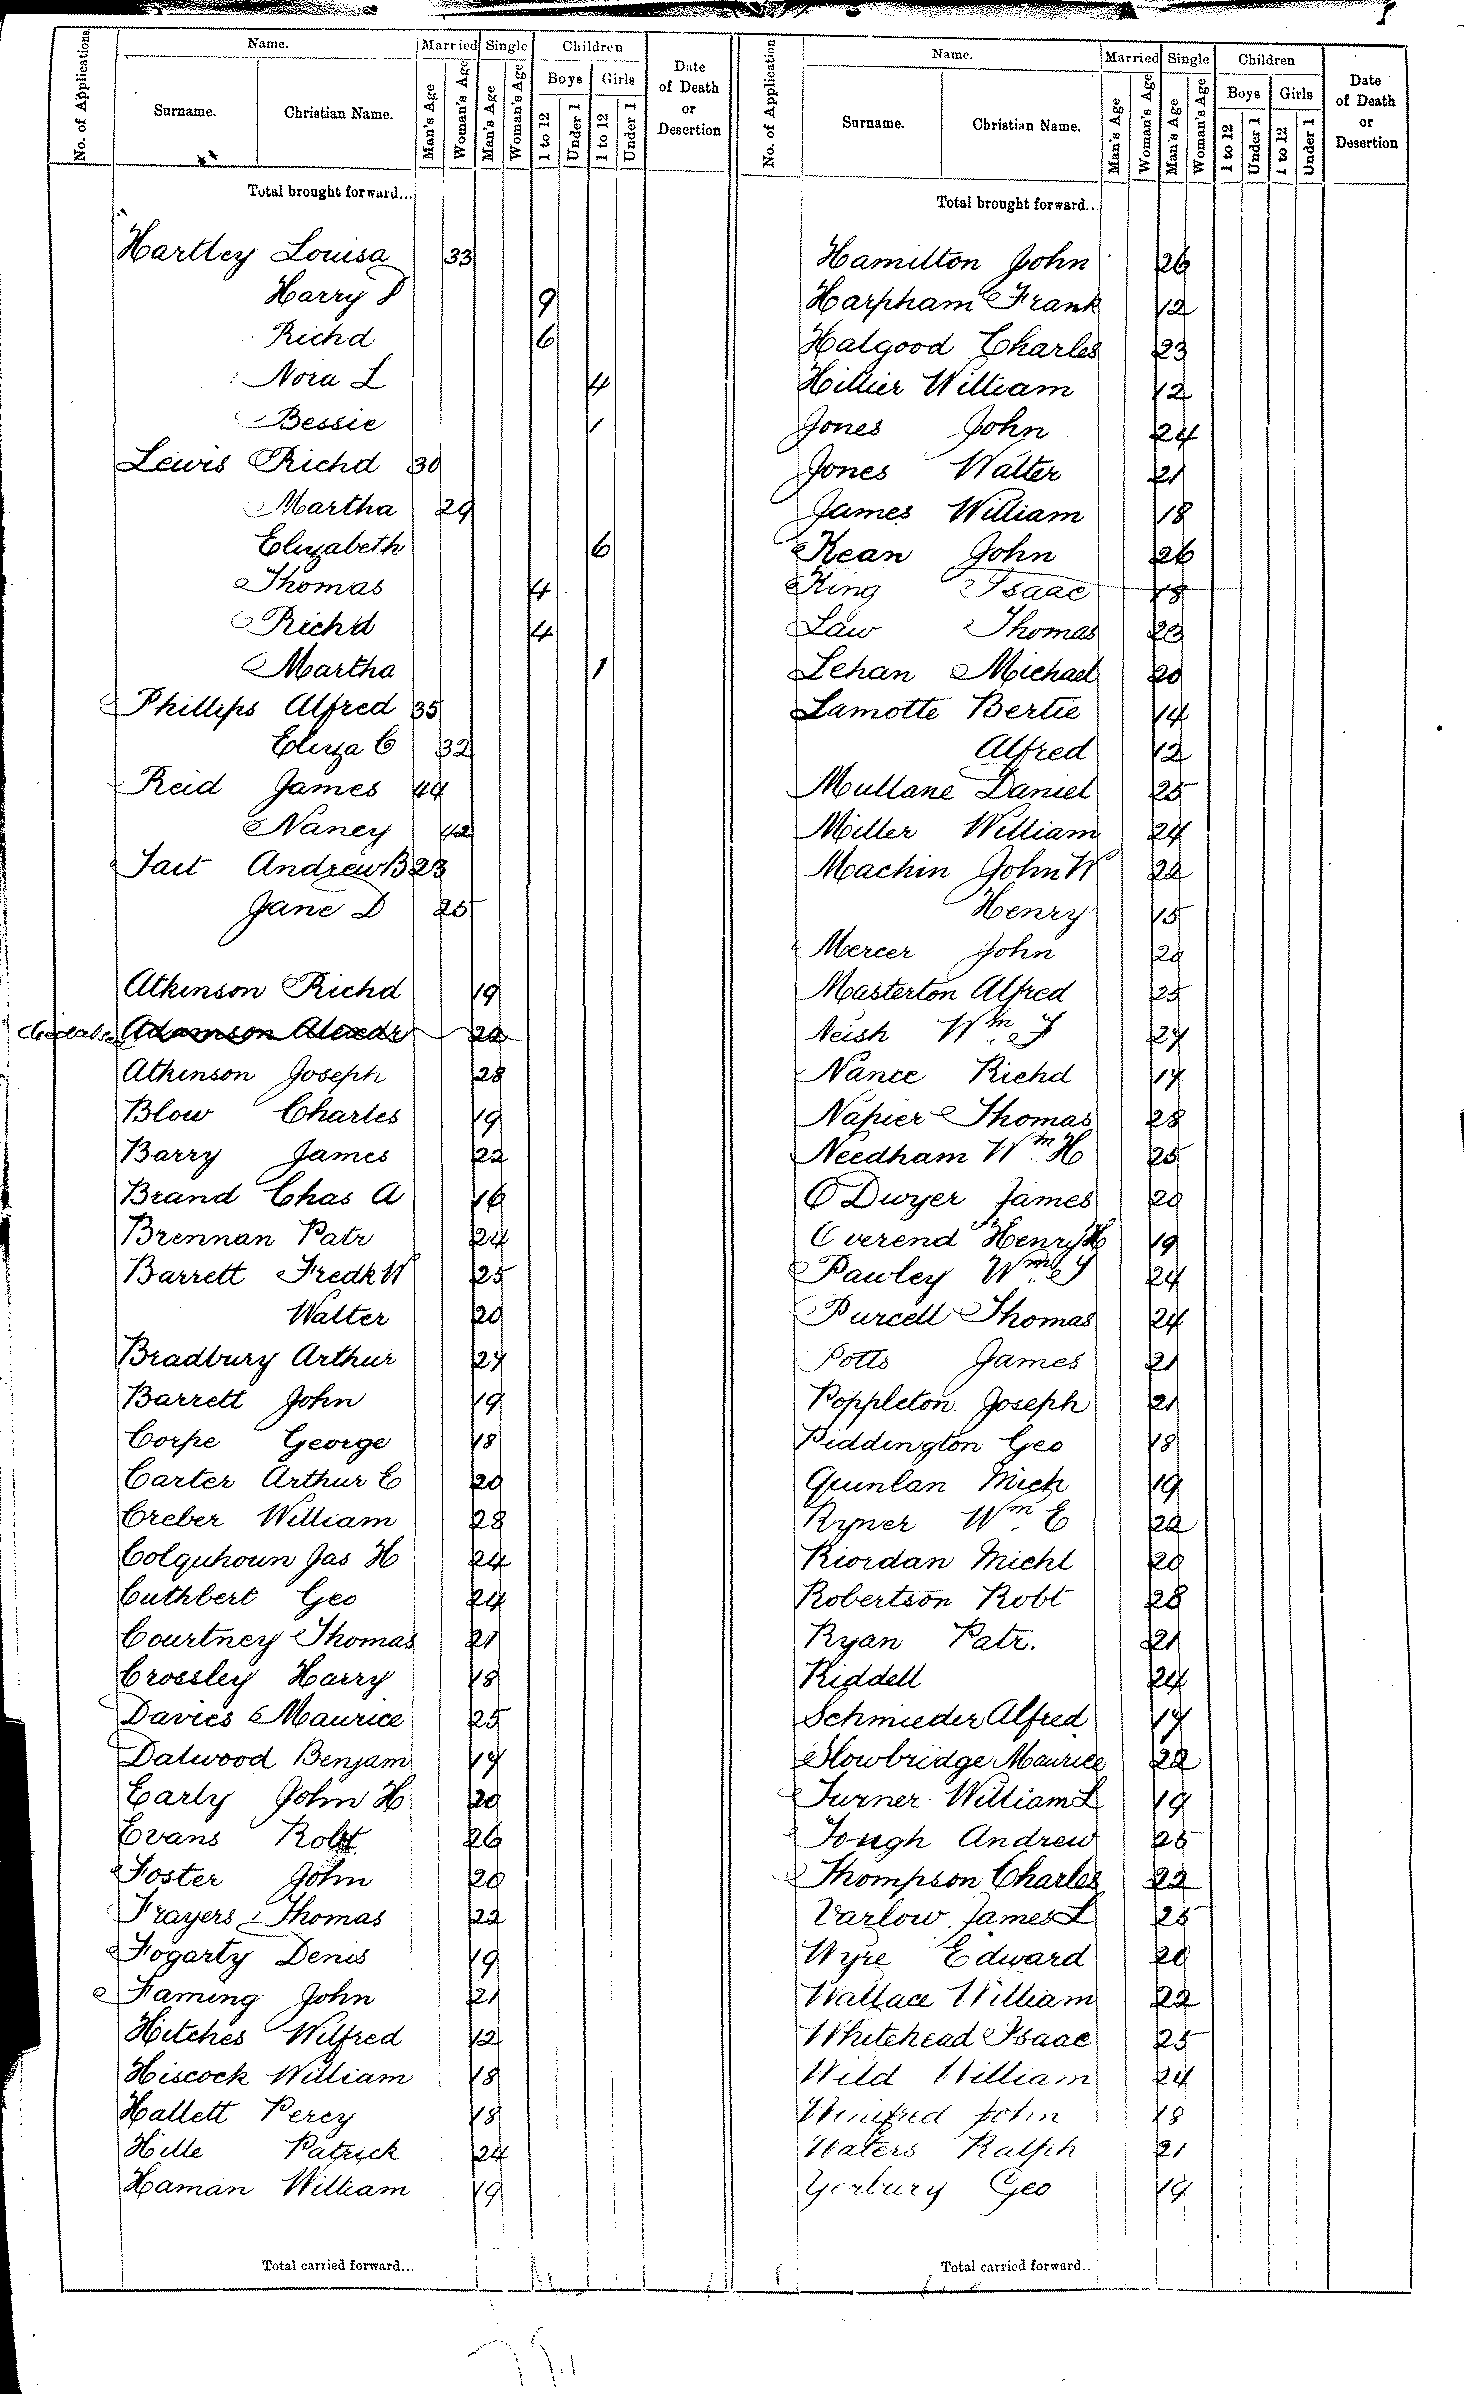 No. of Applications
Name.
Married
Single
Children
Date of Death or Desertion
Surname.
Christian Name.
Man's Age
Woman's Age
Man's Age
Woman's Age
Boys
Girls
1 to 12
Under 1
1 to 12
Under 1
Total brought forward...
Hartley Louisa 33
Harry 9
Richd 6
Nora L 4
Bessie 1
Lewis Richd 30
Martha 29
Elizabeth 6
Thomas 4
Richd 4
Martha 1
Phillips Alfred 35
Eliza C 32
Reid James 44
Nancy 42
Tait Andrew B 23
Jane D 25
Atkinson Richd 19
Adamson Alexdr 22
Atkinson Joseph 28
Blow Charles 19
Barry James 22
Brand Chas A 16
Brennan Patr 24
Barrett Fredk W 25
Walter 20
Bradbury Arthur 27
Barrett John 19
Corpe George 18
Carter Arthur E 20
Creber William 28
Colquhoun Jas H 24
Cuthbert Geo 24
Courtney Thomas 21
Crossley Harry 18
Davies Maurice 25
Dalwood Benjam 17
Early John H 20
Evans Robt 26
Foster John 20
Frayers Thomas 22
Fogarty Denis 19
Faming John 21
Hitches Wilfred 12
Hiscock William 18
Hallett Percy 18
Hille Patrick 24
Haman William 19
Total carried forward...
No. of Application
Name.
Married
Single
Children
Date of Death or Desertion
Surname.
Christian Name.
Man's Age
Woman's Age
Man's Age
Woman's Age
Boys
Girls
1 to 12
Under 1
1 to 12
Under 1
Total brought forward..
Hamilton John 26
Harpham Frank 12
Halgood Charles 23
Hillier William 12
Jones John 24
Jones Walter 21
James William 18
Kean John 26
King Isaac 18
Law Thomas 23
Lehan Michael 20
Lamotte Bertie 14
Alfred 12
Mullane Daniel 25
Miller William 24
Machin John W 22
Henry 15
Mercer John 20
Masterton Alfred 25
Neish Wm J 27
Nance Richd 17
Napier Thomas 28
Needham Wm H 25
O Dwyer James 20
Overend Henry H 19
Pawley Wm J 24
Purcell Thomas 24
Potts James 21
Poppleton Joseph 21
Piddington Geo 18
Quinlan Mich 19
Ryner Wm E 22
Riordan Michl 20
Robertson Robt 28
Ryan Patr. 21
Riddell 24
Schmieder Alfred 17
Slowbridge Maurice 22
Turner William L 19
Tough Andrew 25
Thompson Charles 22
Varlow James L 25
Wyre Edward 20
Wallace William 22
Whitehead Isaac 25
Wild William 24
Winifred John 18
Waters Ralph 21
Yerbury Geo 19
Total carried forward..